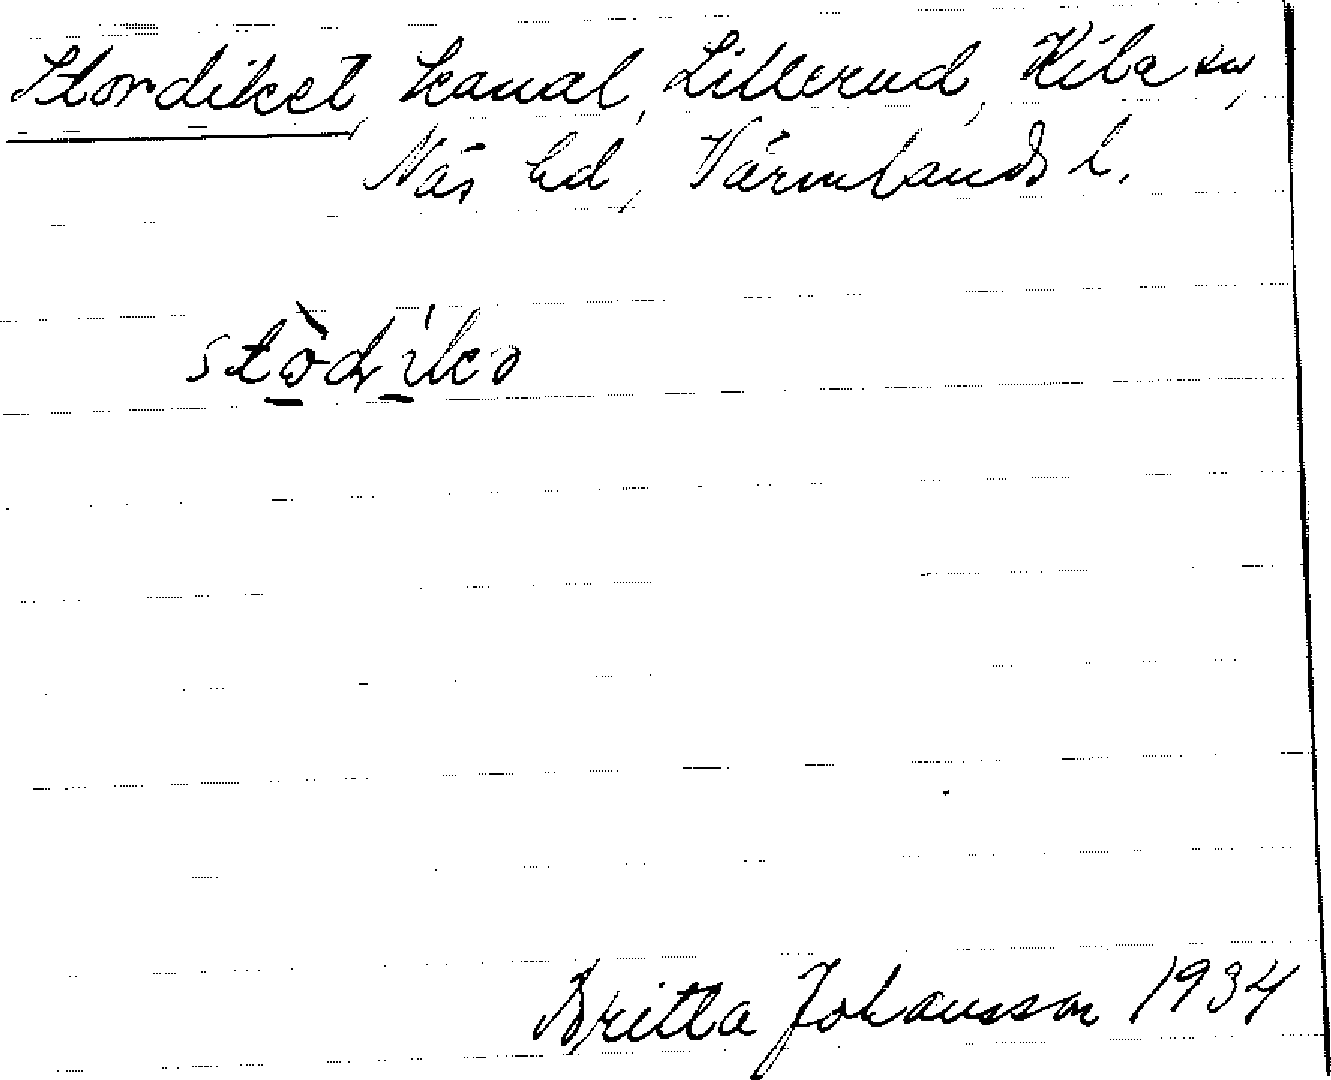 Stordiket, kanal, Lillerud, Kila sn,
Näs hd, Värmlands l.
stò̱dí̱kə
Britta Johansson 1934